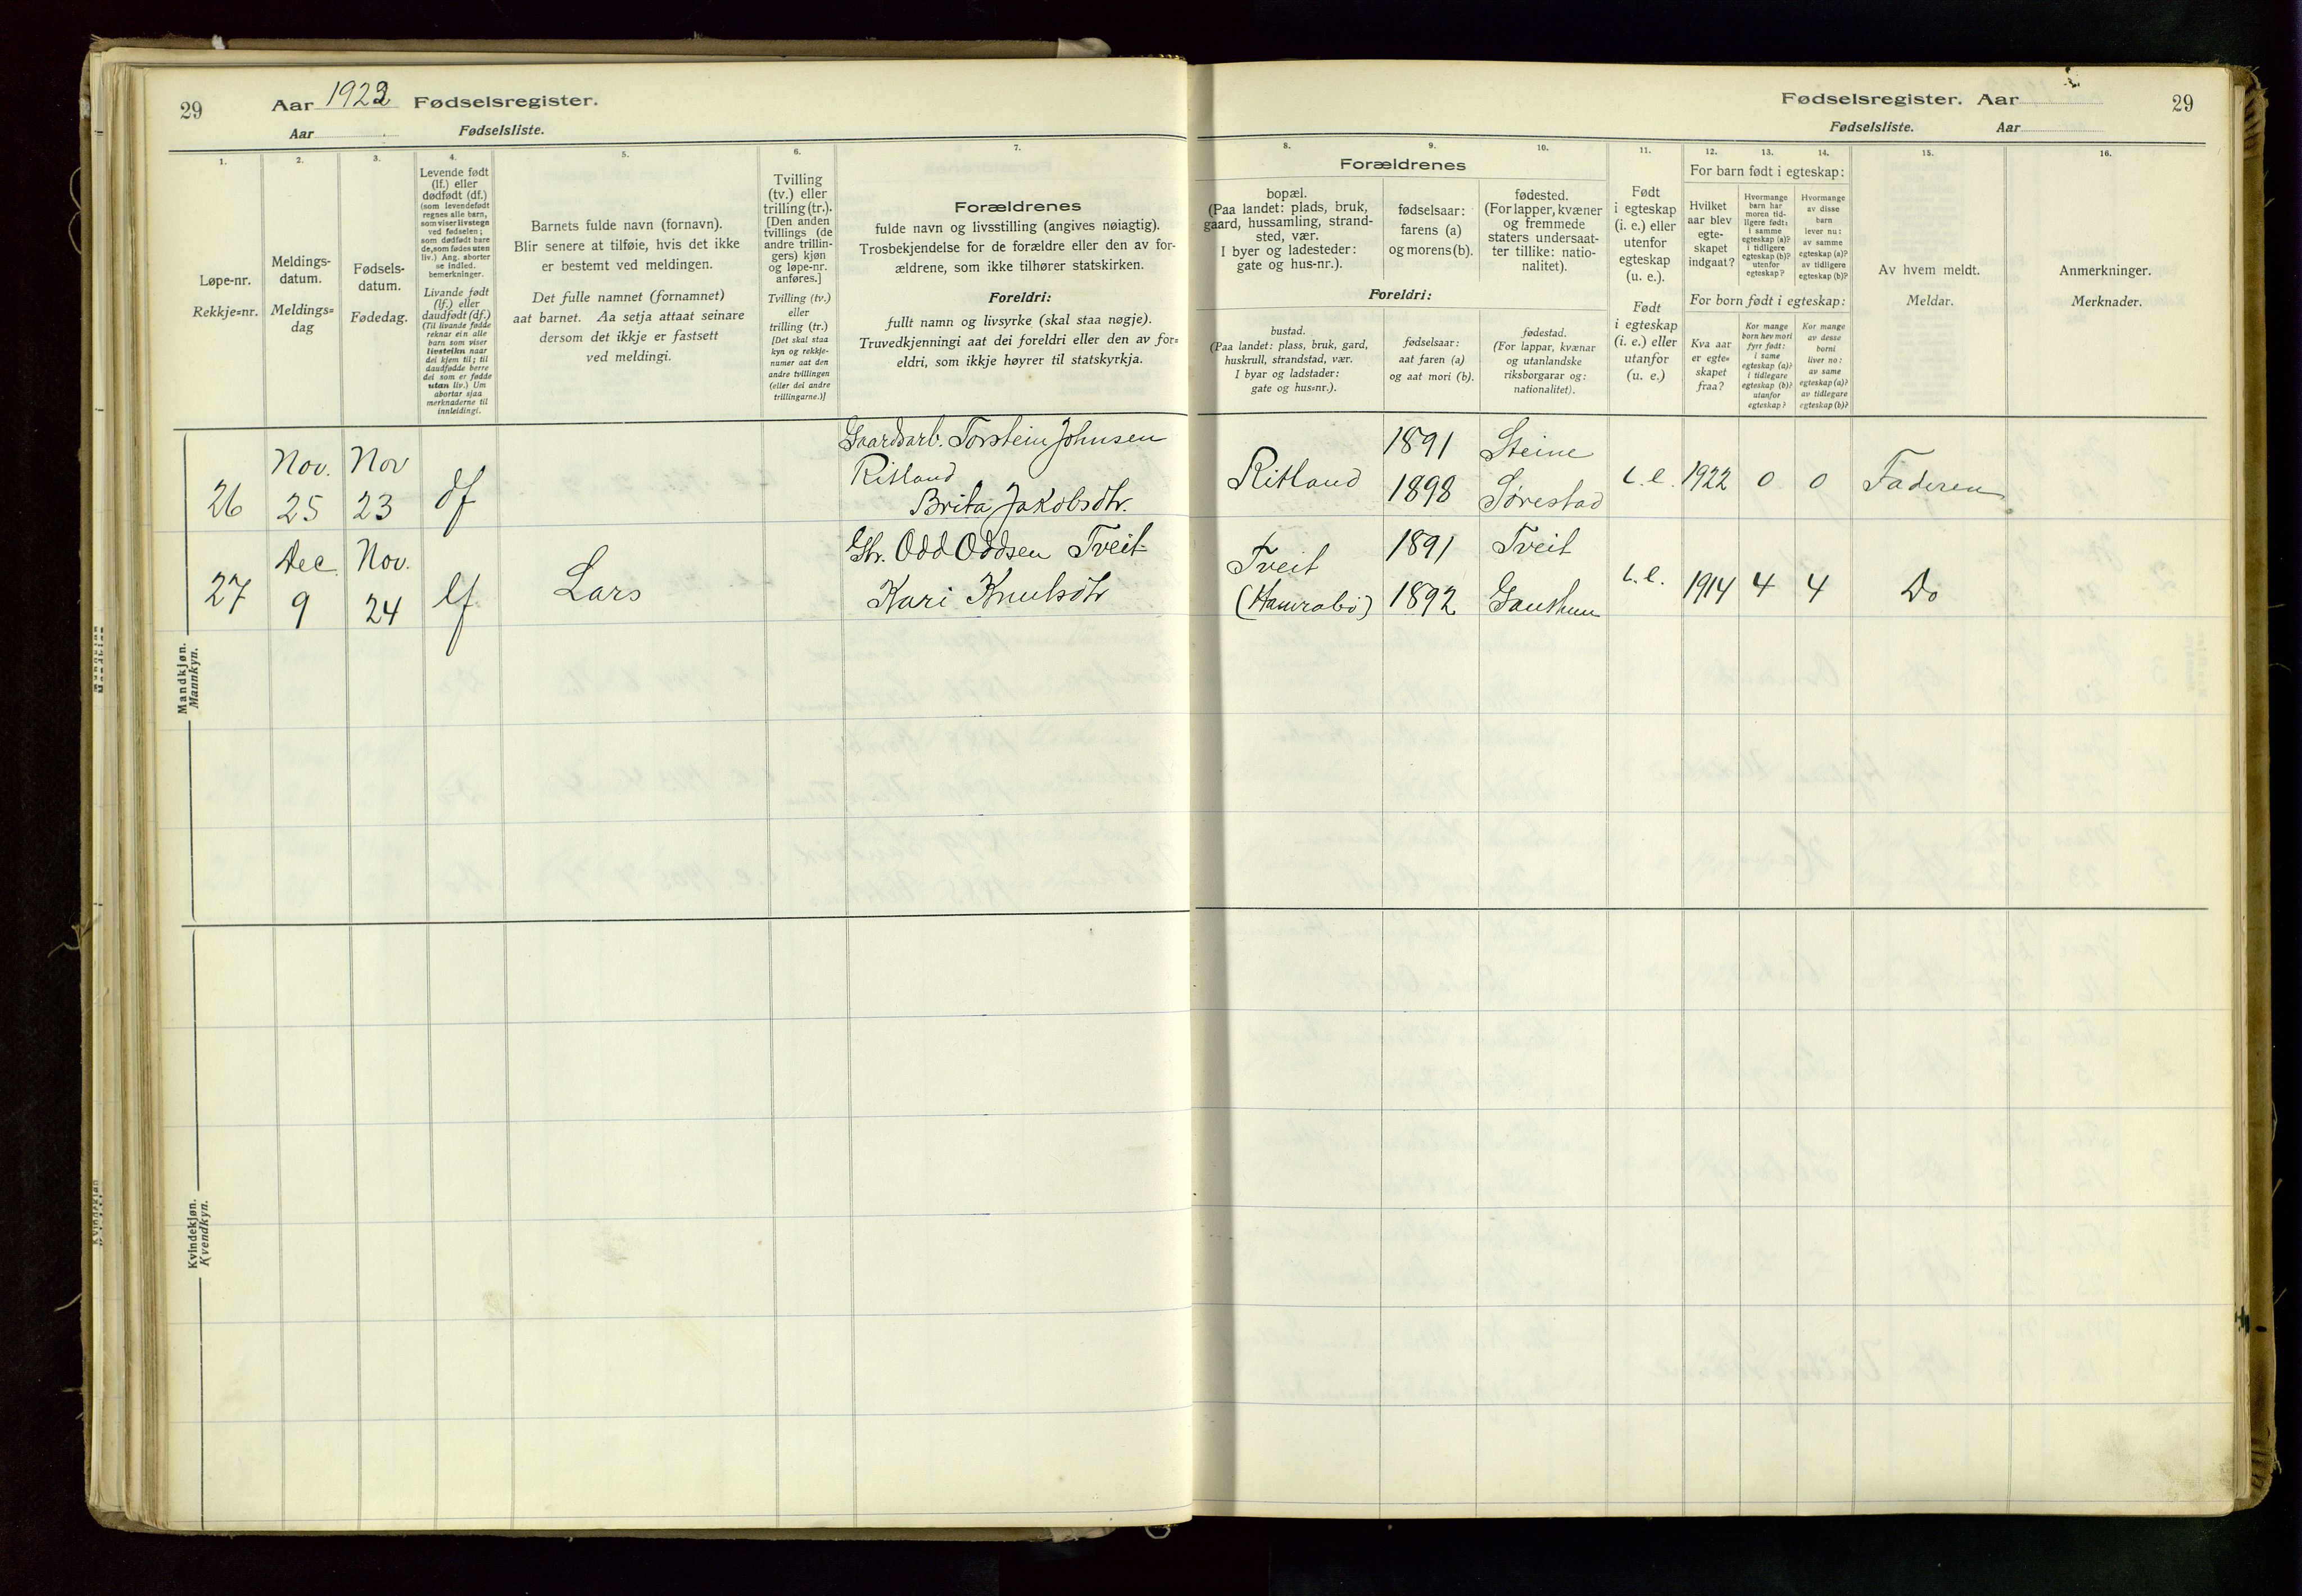 29
Aar 1922 Fødselsregister.
Aar Fødselsliste.
1.
Løpe-nr.
Rekkje=nr.
2.
Meldings-
datum.
Meldings=
dag
3.
Fødsels-
datum.
Fødedag.
4.
Levende født
(lf.) eller
dødfødt (df.)
(som levendefødt
regnes alle barn,
som viser livstegn
ved fødselen;
som dødfødt bare
de, som fødes uten
liv.) Ang. aborter
se indled.
bemerkninger.
Livande født
(lf.) eller
daudfødt (df.)
(Til livande fødde
reknar ein alle
barn som viser
livsteikn naar
dei kjem til; til
daudfødde berre
dei som er fødde
utan liv.) Um
abortar sjaa
merknaderne til
innleidingi.
5.
Barnets fulde navn (fornavn).
Blir senere at tilføie, hvis det ikke
er bestemt ved meldingen.
Det fulle namnet (fornamnet)
aat barnet. Aa setja attaat seinare
dersom det ikkje er fastsett
ved meldingi.
6.
Tvilling
(tv.) eller
trilling (tr.).
[Den anden
tvillings (de
andre trillin-
gers) kjøn
og løpe-nr.
anføres.]
Tvilling (tv.)
eller
trilling (tr.)
[Det skal staa
kyn og rekkje-
numer aat den
andre tvillingen
(eller dei andre
trillingarne.)]
7.
Forældrenes
fulde navn og livsstilling (angives nøiagtig).
Trosbekjendelse for de forældre eller den av for-
ældrene, som ikke tilhører statskirken.
Foreldri:
fullt namn og livsyrke (skal staa nøgje).
Truvedkjenningi aat dei foreldri eller den av for=
eldri, som ikkje høyrer til statskyrkja.
Mandkjøn.
Mannkyn.
26
Nov.
25
Nov
23
df
Gaardarb. Torstein Johnsen
Ritland
Brita Jakobsdtr.
27
Dec.
9
Nov.
24
lf
Lars
Gbr. Odd Oddsen Tveit
Kari Knutsdtr
Kvindekjøn.
Kvendkyn.
Fødselsregister. Aar
29
Fødselsliste. Aar
8.
Forældrenes
bopæl.
(Paa landet: plads, bruk,
gaard, hussamling, strand-
sted, vær.
I byer og ladesteder:
gate og hus-nr.).
Foreldri:
bustad.
(Paa landet: plass, bruk, gard,
huskrull, strandstad, vær.
I byar og ladstader:
gate og hus=nr.).
9.
fødselsaar:
farens (a)
og morens (b).
fødselsaar:
aat faren (a)
og aat mori (b).
10.
fødested.
(For lapper, kvæner
og fremmede
staters undersaat-
ter tillike: natio-
nalitet).
fødestad.
(For lappar, kvænar
og utanlandske
riksborgarar og:
nationalitet).
11.
Født
i egteskap
(i. e.) eller
utenfor
egteskap
(u. e.).
Født
i egteskap
(i. e.) eller
utanfor
(u. e.)
12.
13.
14.
For barn født i egteskap:
Hvilket
aar blev
egte-
skapet
indgaat?
Hvormange
barn har
moren tid-
ligere født:
i samme
egteskap (a)?
i tidligere
egteskap (b)?
utenfor
egteskap?
Hvormange
av disse
barn
lever nu:
av samme
egteskap (a)?
av tidligere
egteskap (b)?
For born født i egteskap:
Kva aar
er egte=
skapet
fraa?
Kor mange
born hev mori
fyrr født:
i same
egteskap (a)?
i tidlegare
egteskap (b)?
utanfor
egteskap?
Kor mange
av desse
borni
liver no:
av same
egteskap (a)?
av tidlegare
egteskap (b)?
15.
Av hvem meldt.
Meldar.
16.
Anmerkninger.
Merknader.
Ritland
1891
1898
Steine
Sørestad
i. e.
1922
0
0
Faderen
Tveit
(Hamrabø)
1891
1892
Tveit
Gauthun
i. e.
1914
4
4
Do